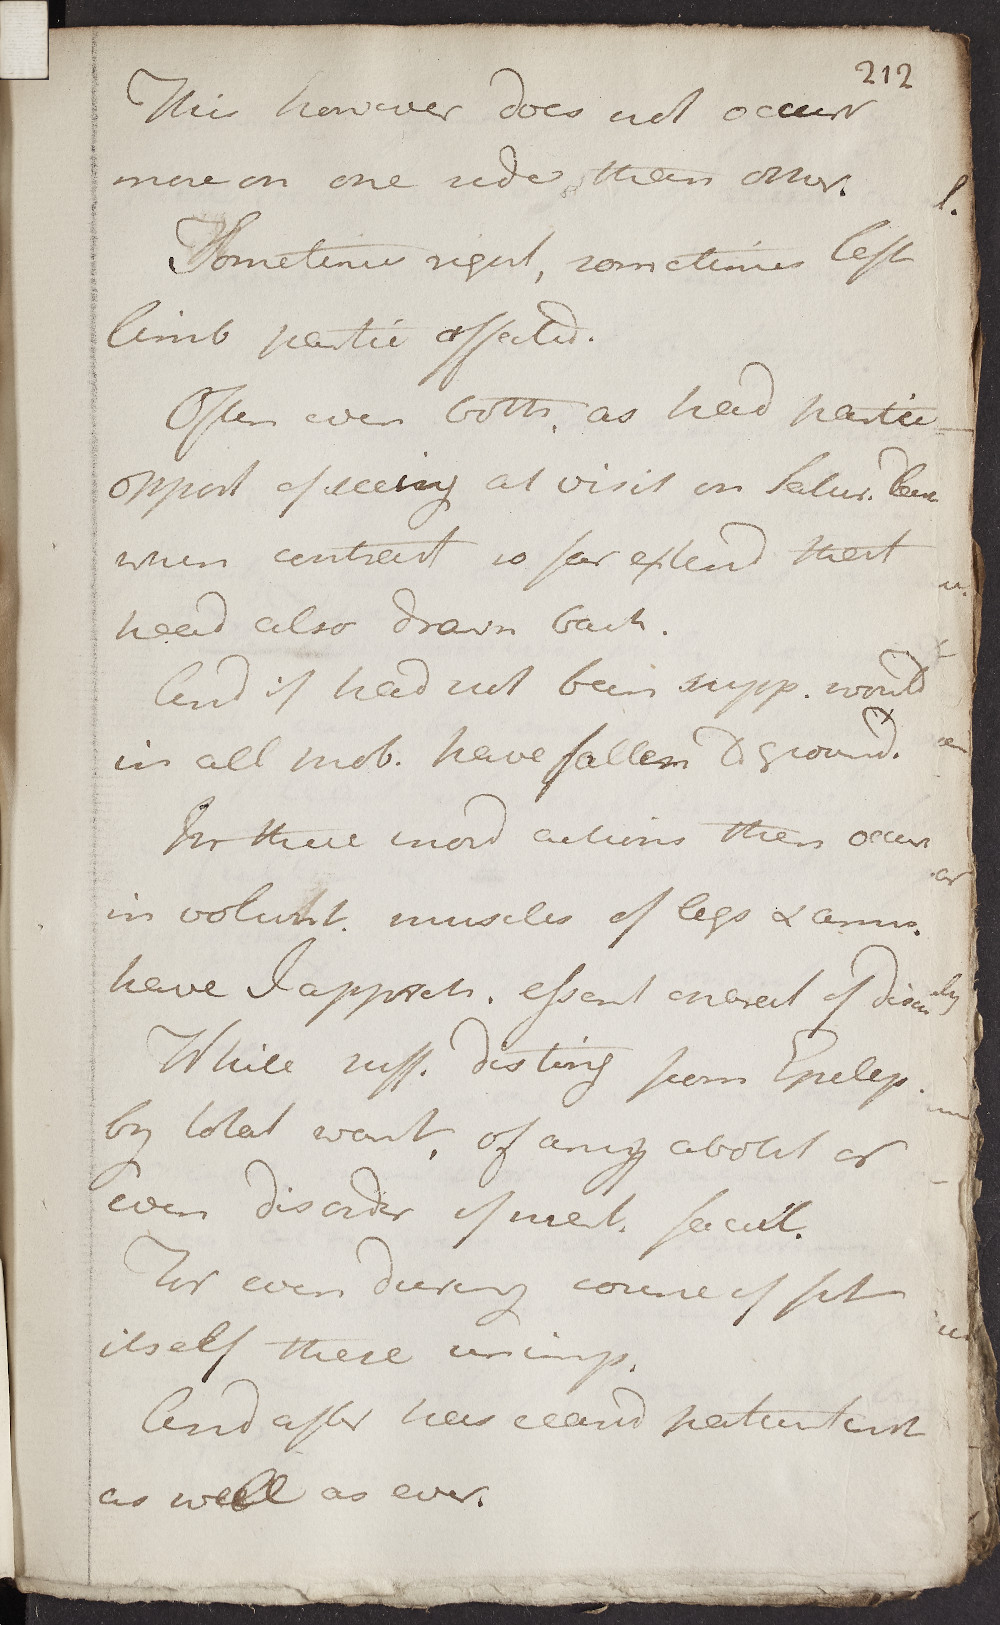 212
This however does not occur
more on one side than other.
Sometimes right, sometimes left
limb partic affected.
Often even both, as head partic
opport of seeing at visit on Satur. last
when contract so far extend that
head also drawn back.
And if head not been supp. would
in all prob. have fallen to ground.
In these inord actions then occur
in volunt. muscles of legs & arms.
have I appreh. essent charact of disease
While suff. disting from Epilep.
by total want, of any abolit or
even disorder of ment. facult.
For even during course of fit
itself these unimp.
And after has ceased patient
as well as ever.